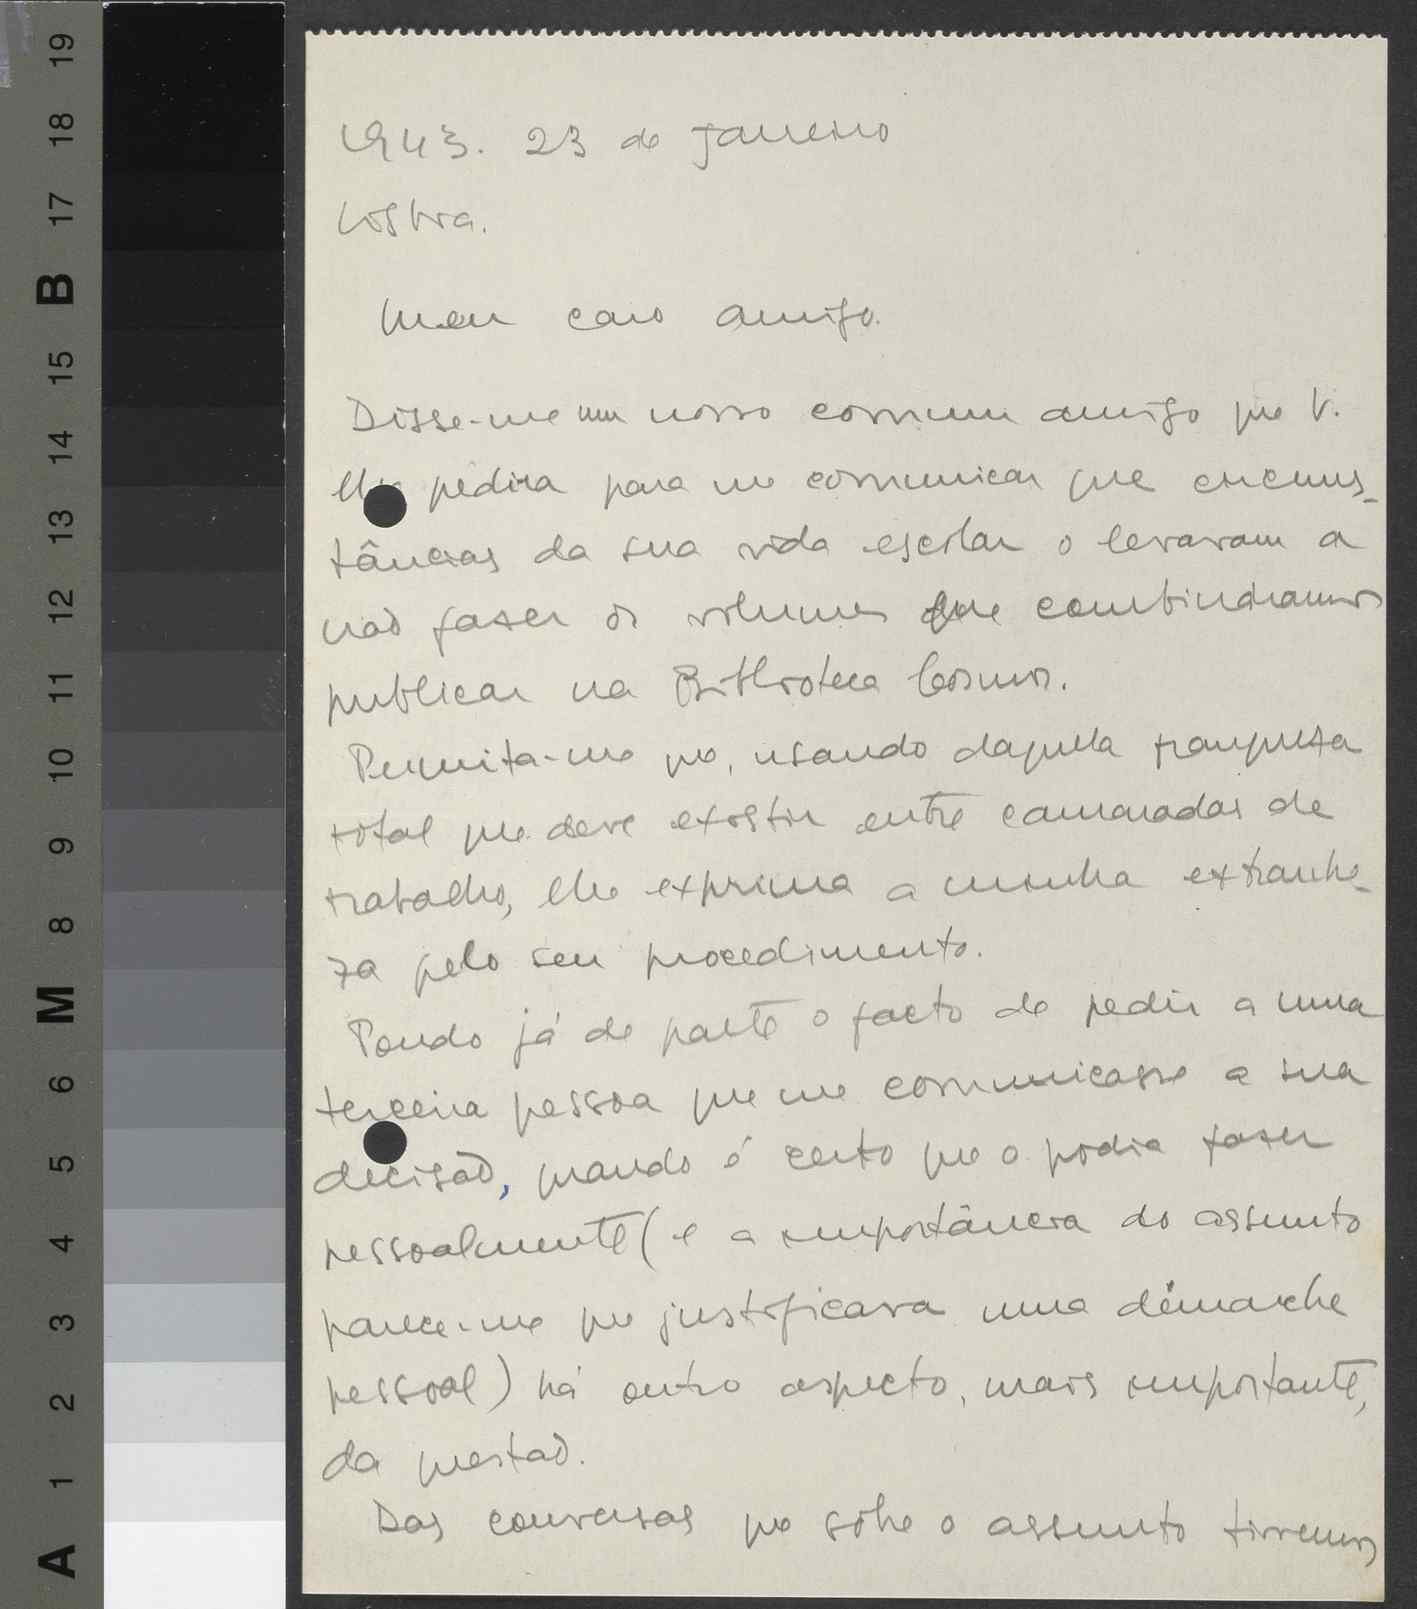 1943. 23 de Janeiro
Lisboa.
Meu caro amigo.
Disse-me um nosso comum amigo que V.
lhe pedira para me comunicar que circuns-
tâncias da sua vida escolar o levaram a
não fazer os volumes que combináramos
publicar na Biblioteca Cosmos.
Permita-me que, usando daquela franqueza
total que deve existir entre camaradas de
trabalho, lhe exprima a minha extranhe-
za pelo seu procedimento.
Pondo já de parte o facto de pedir a uma
terceira pessoa que me comunicasse a sua
decisão, quando é certo que o podia fazer
pessoalmente (e a importância do assunto
parece-me que justificava uma démarche
pessoal) há outro aspecto, mais importante,
da questão.
Das conversas que sôbre o assunto tivemos
19
18
17
B
15
14
13
12
11
10
9
8
M
6
5
4
3
2
1
A